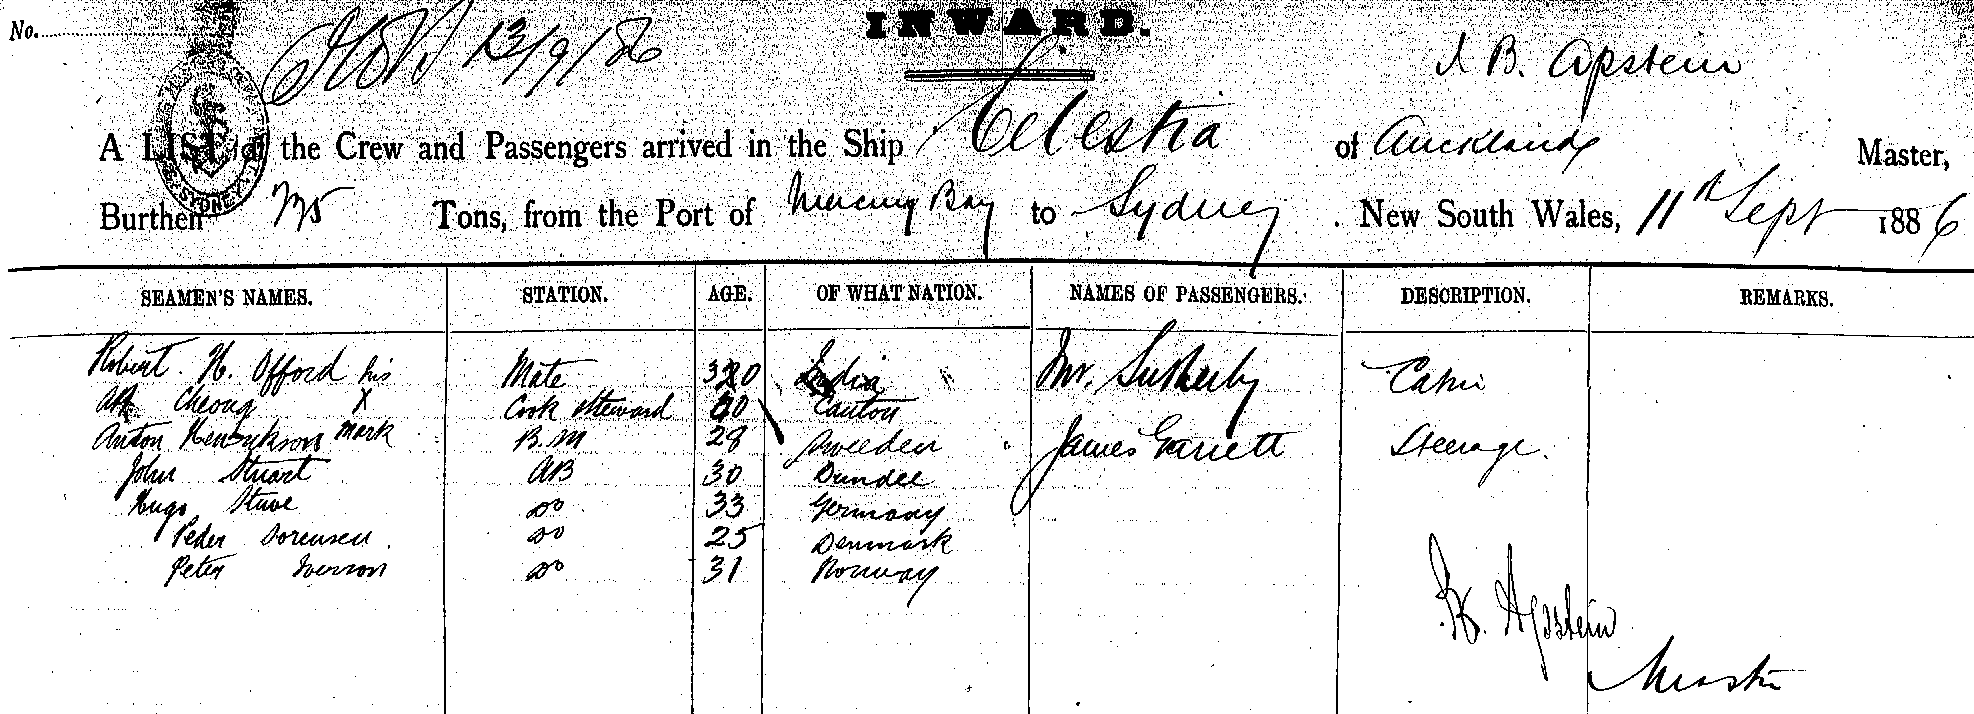 No.
INWARD.
13/9/86
B. Apstein
A LIST of the Crew and Passengers arrived in the Ship Celestia of Auckland Master,
Burthen Tons, from the Port of Bay to Sydney . New South Wales, 11th Sept 1886
SEAMEN'S NAMES. STATION. AGE. OF WHAT NATION. NAMES OF PASSENGERS. DESCRIPTION. REMARKS.
Robert. H. Offord his Mate India Mr. Sutherby Cabin
Ah Cheong X Cook Steward 60 Canton
Anton Henrikson mark B.M 28 Sweeden James Garrett Steerage.
John Stuart AB 30 Dundee
Hugo Stuve Do 33 Germany
Peder Sorensen. Do 25 Denmark
Peter Iverson Do 31 Norway
Apstein
Master